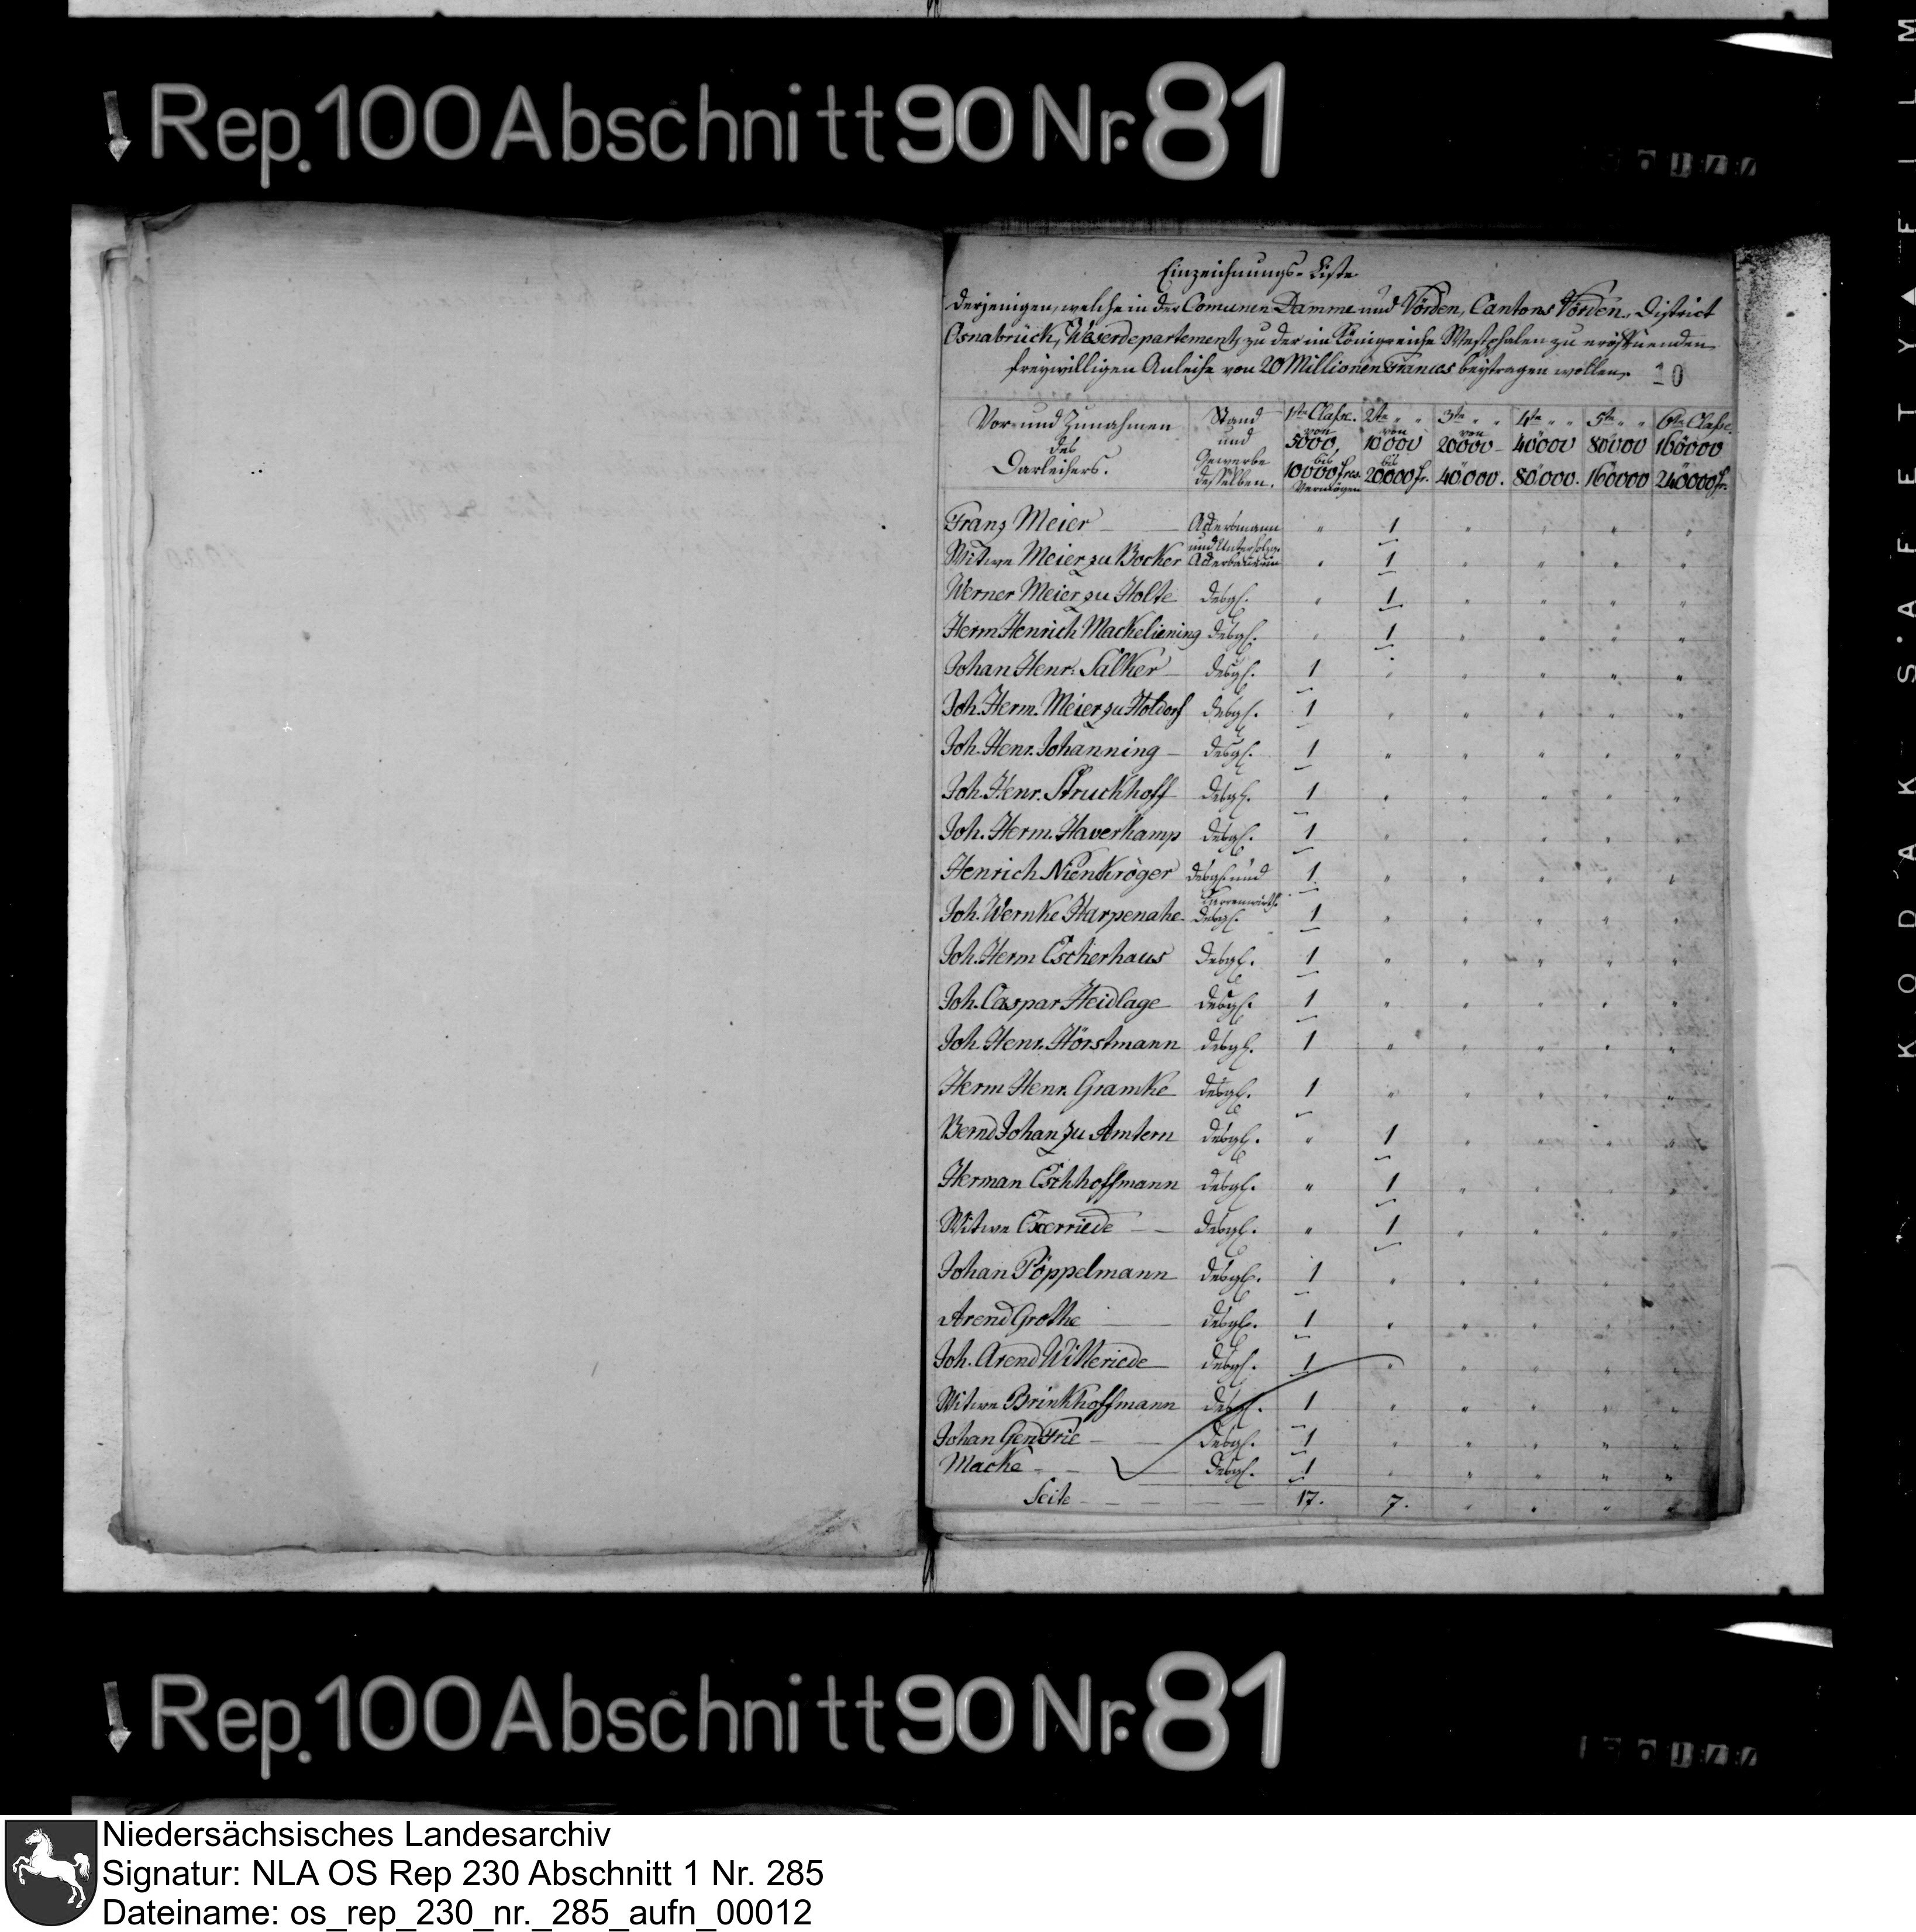 Rep. 100 Abschnitt 90 Nr. 81
Einzeichnungs-Liste
derjenigen, welche in der Comunen Damme und Vörden, Cantons Vörden, District
Osnabrück, Weserdepartement, zu der im Königreiche Westphalen zu eröffnenden
freywilligen Anleihe von 20 Millionen Francs beytragen wollen.
Vor- und Zunahmen des Darleihers. Stand und Gewerbe desselben. 1ste Classe. von 5000 bis 10000 frcs. Vermögen 2te " " von 10000 bis 20000 fr. 3te " " von 20000 - 40.000. 4te " " 40000 80.000. 5te " " 80000 160000 6te Classe. 160000 240000 fr.
Franz Meier Ackersmann " 1 " " " "
und
Witwe Meier zu Bocker Ackerbäuerin " 1 " " " "
Werner Meier zu Holte desgl. " 1 " " " "
Herm Henrich Mackeliening desgl. " 1 " " " "
Johan Henr. Salker desgl. 1 " " " " "
Joh. Herm. Meier zu Holdorf desgl. 1 " " " " "
Joh. Henr. Johanning desgl. 1 " " " " "
Joh. Henr. Struckhoff desgl. 1 " " " " "
Joh. Herm. Haverkamp desgl. 1 " " " " "
Henrich Nienkröger desgl. und 1 " " " " "
Joh. Wernke Harpenahe desgl. 1 " " " " "
Joh. Herm Escherhaus desgl. 1 " " " " "
Joh. Caspar Heidlage desgl. 1 " " " " "
Joh. Henr. Hörstmann desgl. 1 " " " " "
Herm Henr. Gramke desgl. 1 " " " " "
Bernd Johan zu Amtern desgl. " 1 " " " "
Herman Eschhoffmann desgl. " 1 " " " "
Witwe Exerriede desgl. " 1 " " " "
Johan Pöppelmann desgl. 1 " " " " "
Arend Grothe desgl. 1 " " " " "
Joh. Arend Witteriede desgl. 1 " " " " "
Witwe Brinkhoffmann desgl. 1 " " " " "
Johan Gendtrie desgl. 1 " " " " "
Macke desgl. 1 " " " " "
Seite 17. 7. " " " "
Rep. 100 Abschnitt 90 Nr. 81
KODAK SAFETY FILM
Niedersächsisches Landesarchiv
Signatur: NLA OS Rep 230 Abschnitt 1 Nr. 285
Dateiname: os_rep_230_nr._285_aufn_00012